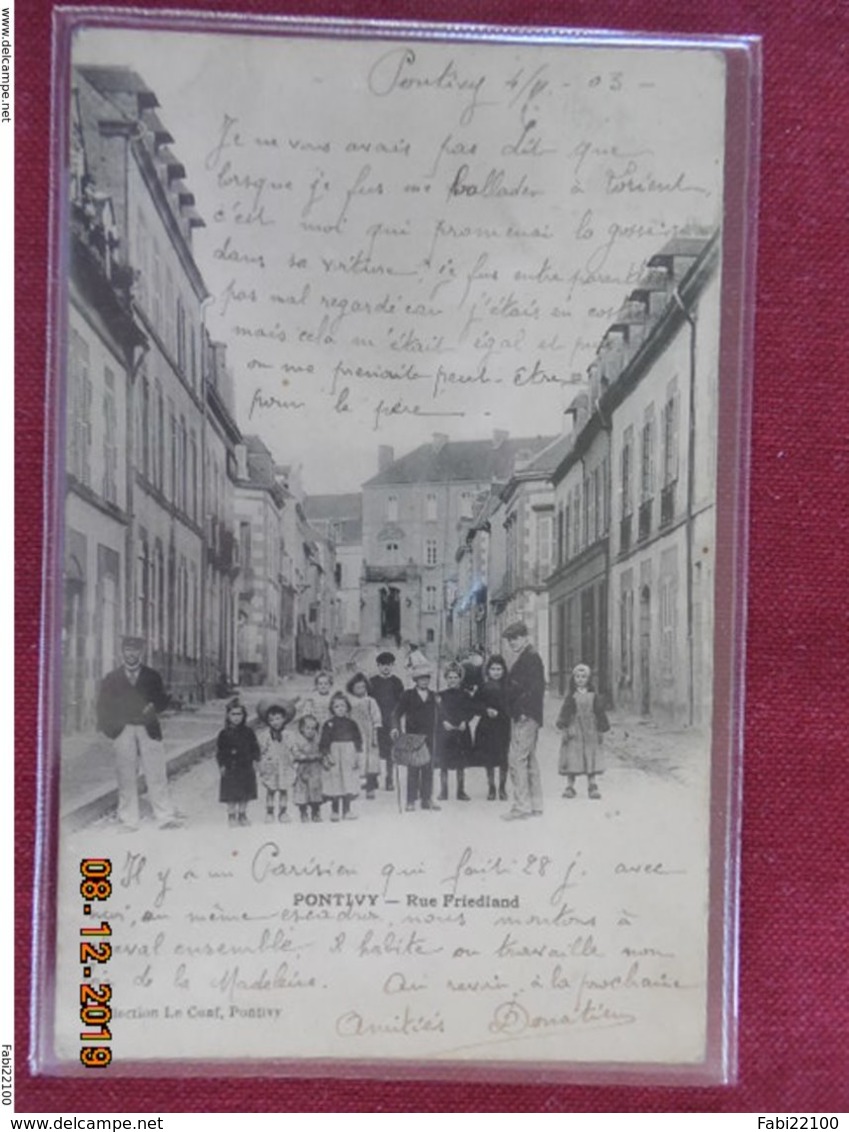 www.delcampe.net
Pontivy 4/ - 03 -
Je ne vous avais pas dit que
lorsque je fus me ballader à Lorient
c'est moi qui promenai la gosseline
dans sa voiture, je fus entre parenth
pas mal regardé car j'étais en cos
mais cela m'était égal et puis
on me prenait peut-être
pour le père.
Il y a un Parisien qui fait 28 j. avec
moi, au même escadron, nous montons à
cheval ensemble. Il habite ou travaille non
de la Madeleine. Au revoir, à la prochaine
Amitiés Donatien
PONTIVY — Rue Friedland
lection Le Cunf, Pontivy
08.12.2019
Fabi22100
Fabi22100